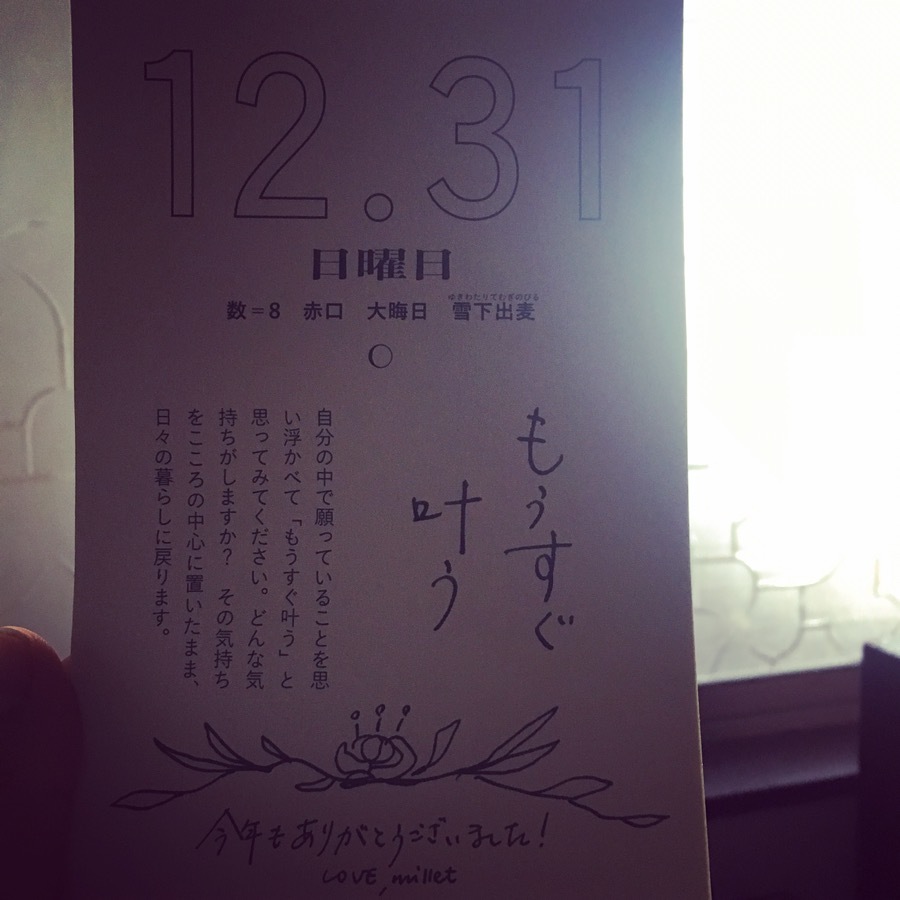 12.31
日曜日
数=8 赤口 大晦日 雪下出麦
ゆきわたりてむぎのびる
○
もうすぐ
叶う
自分の中で願っていることを思
い浮かべて「もうすぐ叶う」と
思ってみてください。どんな気
持ちがしますか? その気持ち
をこころの中心に置いたまま、
日々の暮らしに戻ります。
今年もありがとうございました!
LOVE, millet